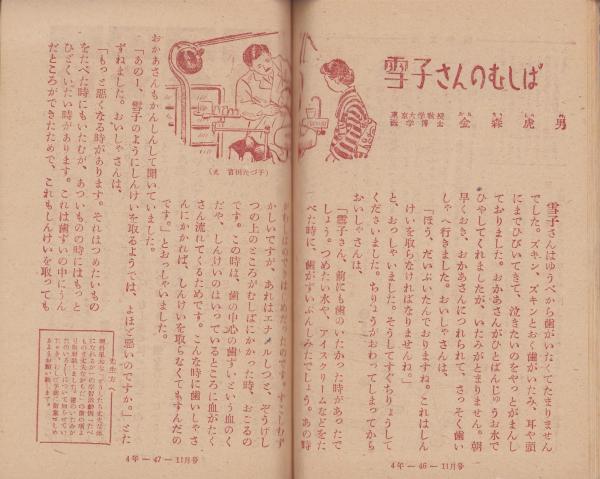 雪子さんのむしば
東京大学教授
医学博士
金森虎男
雪子さんはゆうべから歯がいたくてたまりません
でした。ズキン、ズキンとおく歯がいたみ、耳や頭
にまでひびいてきて、泣きたいのをやっとがまんし
ておりました。おかあさんがひとばんじゅうお水で
ひやしてくれましたが、いたみがとまりません。朝
早くおき、おかあさんにつれられて、さっそく歯い
しゃへ行きました。おいしゃさんは、
「ほう、だいぶいたんでおりますね。これはしん
けいを取らなければなりませんね。」
と、おっしゃいました。そうしてすぐちりょうして
くださいました。ちりょうがおわってしまってから
おいしゃさんは、
「雪子さん、前にも歯のいたかった時があったで
しょう。つめたい水や、アイスクリームなどをた
べた時に、歯がずいぶんしみたでしょう。あの時
4年—46—11月号
かしいですが、あれはエナメルしつと、ぞうげし
つの上のところがむしばにかかった時、おこるの
です。この時は、歯の中心の歯ずいという血のく
だや、しんけいのはいっているところに血がたく
さん流れてくるためです。こんな時に歯いしゃさ
んにかかれば、しんけいを取らなくてもすんだの
です。」とおっしゃいました。
おかあさんもかんしんして聞いていました。
「あのー、雪子のようにしんけいを取るようでは、よほど悪いのですか。」とた
ずねました。おいしゃさんは、
「もっと悪くなる時があります。それはつめたいもの
をたべた時にもいたむが、あついものの時にはもっと
ひどくいたい時があります。これは歯ずいの中にうん
だところができたためで、これもしんけいを取っても
先生方へ
4年—47—11月号